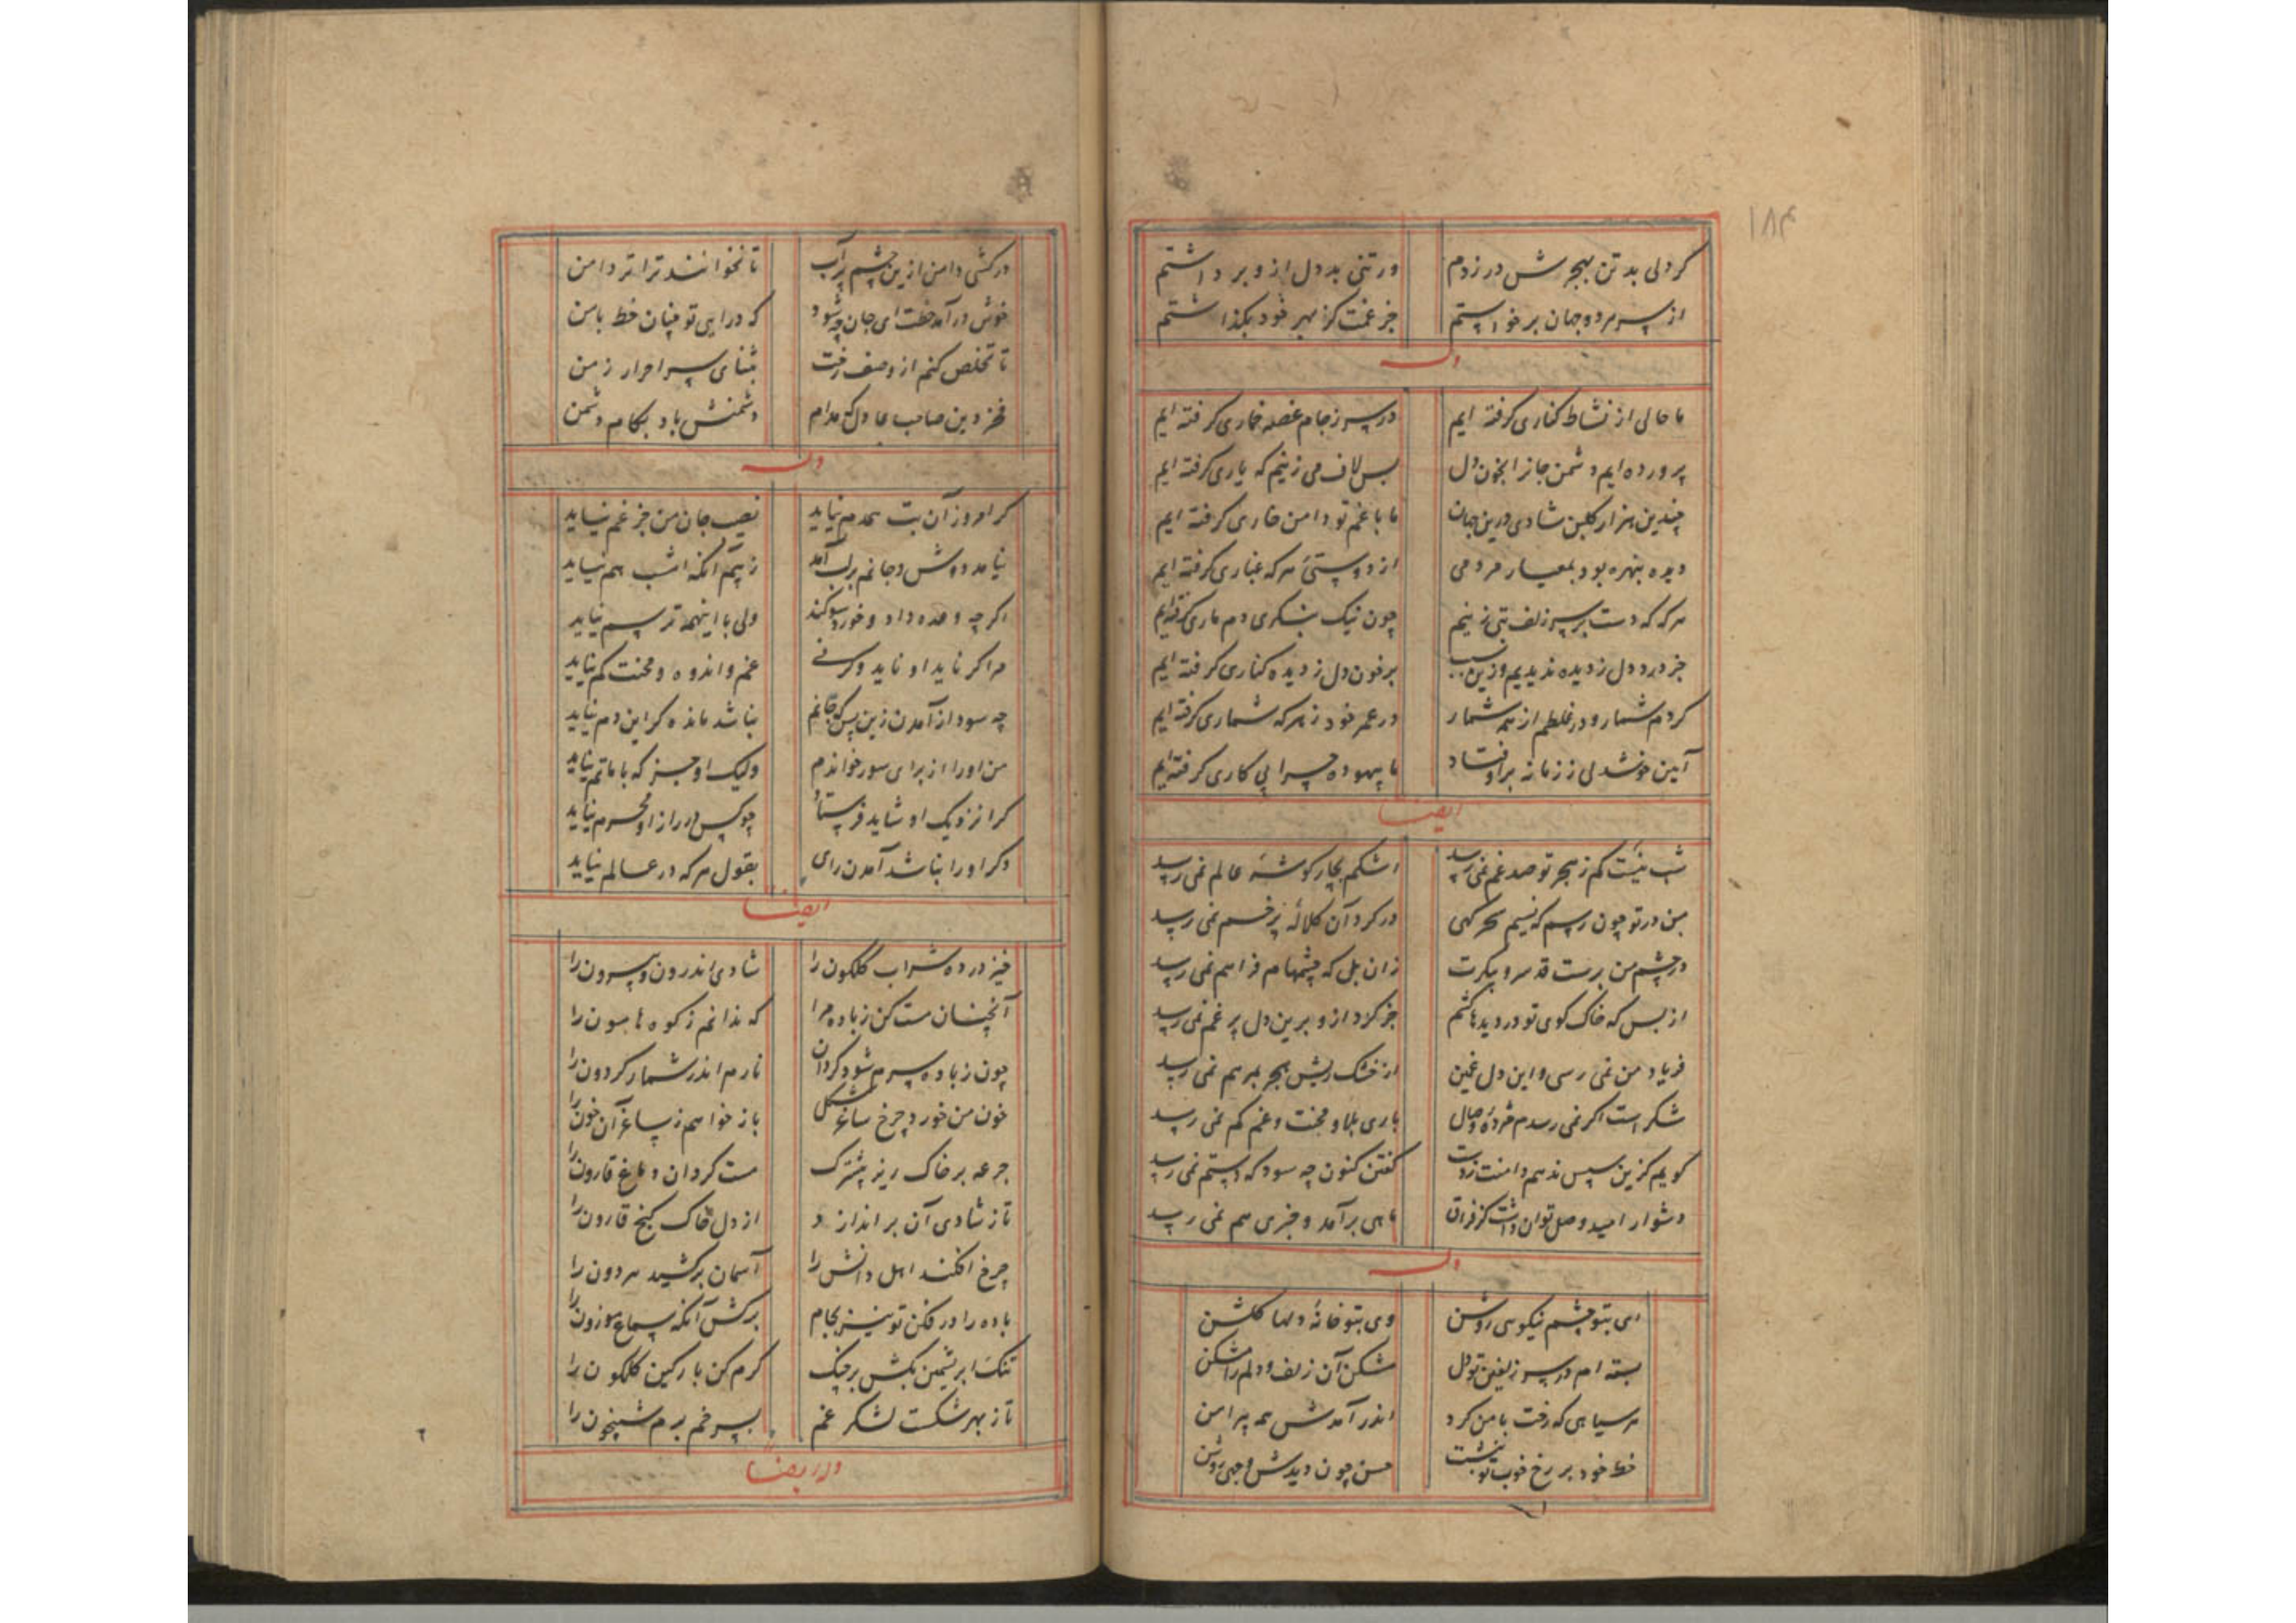 ۱۸۴
کر دلی بد تن بهجرش در زدم ورتنی بد دل ازو برداشتم
از سر هر دو جهان برخواستم جز غمت کز بهر خود بکذاشتم
وله
ما حالی از نشاط کناری کرفته ایم در سر ز جام غصه خماری کرفته ایم
پرورده ایم دشمن جانرا بخون دل بس لاف می زنیم که یاری کرفته ایم
چندین هزار کلبن شادی درین جهان ما با غم تو دامن خاری کرفته ایم
دیده بنهره بود بمعیار مردمی از دوستیٔ هرکه عیاری کرفته ایم
هر که که دست بر سر زلف بتی زنیم چون نیک بنکری دم ماری کرفته‌ایم
جز درد دل ز دیده ندیدیم وزین سبب بر خون دل ز دیده کناری کرفته ایم
کردم شمار و در غلطم از همه شمار در عمر خود ز هرکه شماری کرفته ایم
آیین خوشدلی ز زمانه بر اوفتاد ما بیهوده چرا پی کاری کرفته‌ایم
ایضا
شب نیست کم ز هجر تو صد غم نمی رسد اشکم بچار کوشهٔ عالم نمی رسد
من در تو چون رسم که نسیم سحرکهی در کرد آن کلالهٔ پرخم نمی رسد
در چشم من برست قد سرو پیکرت زان بل که چشمهام فراهم نمی رسد
از بس که خاک کوی تو در دیدها کشم جز کرد ازو برین دل پر غم نمی رسد
فریاد من نمی رسی و این دل غمین از خشک ریش هجر بمرهم نمی رسد
شکر است اکر نمی رسدم مژدهٔ وصال باری بلا و محنت و غم کم نمی رسد
کویم کزین سپس ندهم دامنت ز دست کفتن کنون چه سود که دستم نمی رسد
دشوار امید وصل توان داشت کز فراق ماهی برآمد و خبری هم نمی رسد
وله
ای بتو چشم نیکوسی روشن وی بتو خانهٔ دلها کلشن
بسته ام در سر زلفین تو دل مشکن آن زلف و دلم را مشکن
هر سیاهی که رخت با من کرد اندر آمدش همه پیرامن
خط خود بر رخ خوب تو نبشت حسن چون دیدش وجهی روشن
در کشی دامن ازین چشم پرآب تا نخوانند ترا تر دامن
خوش درآمد خطت ای جان چه شود که درآیی تو چنان خط با من
تا تخلص کنم از وصف رخت بثنای سر احرار زمن
فخر دین صاحب عادل که مدام دشمنش باد بکام دشمن
وله
کر امروز آن بت همدم نیاید نصیب جان من جز غم نیاید
نیامد دوش و جانم بر لب آمد ز بیم آنکه امشب هم نیاید
اکر چه وعده داد و خورد سوکند ولی با اینهمه ترسم نیاید
مرا کر ناید او ناید وکرنی غم و اندوه و محنت کم نیاید
چه سود از آمدن زین پس که جانم نباشد مانده کر این دم نیاید
من اورا از برای سور خواندم ولیک او جز که با ماتم نیاید
کرا نزدیک او شاید فرستاد چو کس در راز او محرم نیاید
وکر اورا نباشد آمدن رای بقول هرکه در عالم نیاید
ایضا
خیز در ده شراب کلکون را شادی اندرون و بیرون را
آنچنان مست کن ز باده مرا که ندانم ز کوه هامون را
چون ز باده سرم شود کردان نارم اندر شمار کردون را
خون من خورد چرخ ساغر شکل باز خواهم ز ساغر آن خون را
جرعه بر خاک ریز بیشترک مست کردان دماغ قارون را
تا ز شادی آن براندازد از دل خاک کنج قارون را
چرخ افکند اهل دانش را آسمان برکشید هر دون را
باده را در فکن تو نیز بجام برکش آنکه سماع موزون را
تنک ابریشمین بکش بر چنک کرم کن بارکین کلکون را
تا ز بهر شکست لشکر غم بسر خم برم شبیخون را
وله ایضا